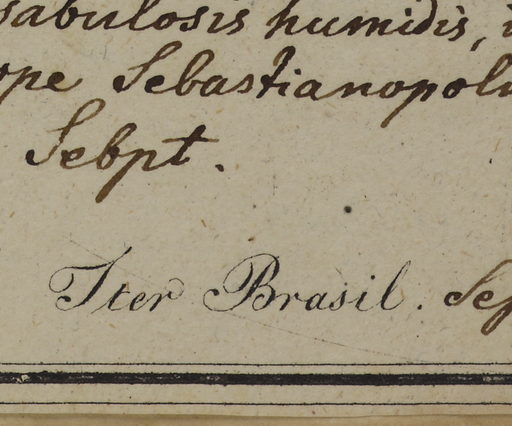 sabulosis humidis,
pe Sebastianopol
Sebpt.
Iter Brasil. Sep